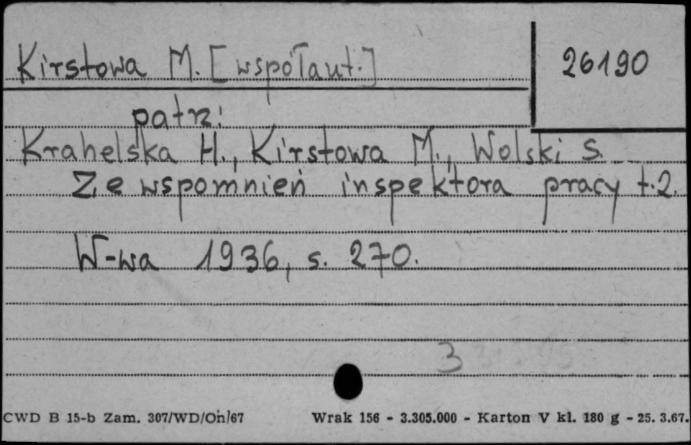 Kirstowa M. [współaut.]
26190
patrz:
Krahelska H., Kirstowa M., Wolski S.
Ze wspomnień inspektora pracy t.2.
W-wa 1936, s. 270.
3
CWD B 15-b Zam. 307/WD/On/67 Wrak 156 - 3.305.000 - Karton V kl. 180 g - 25. 3.67.